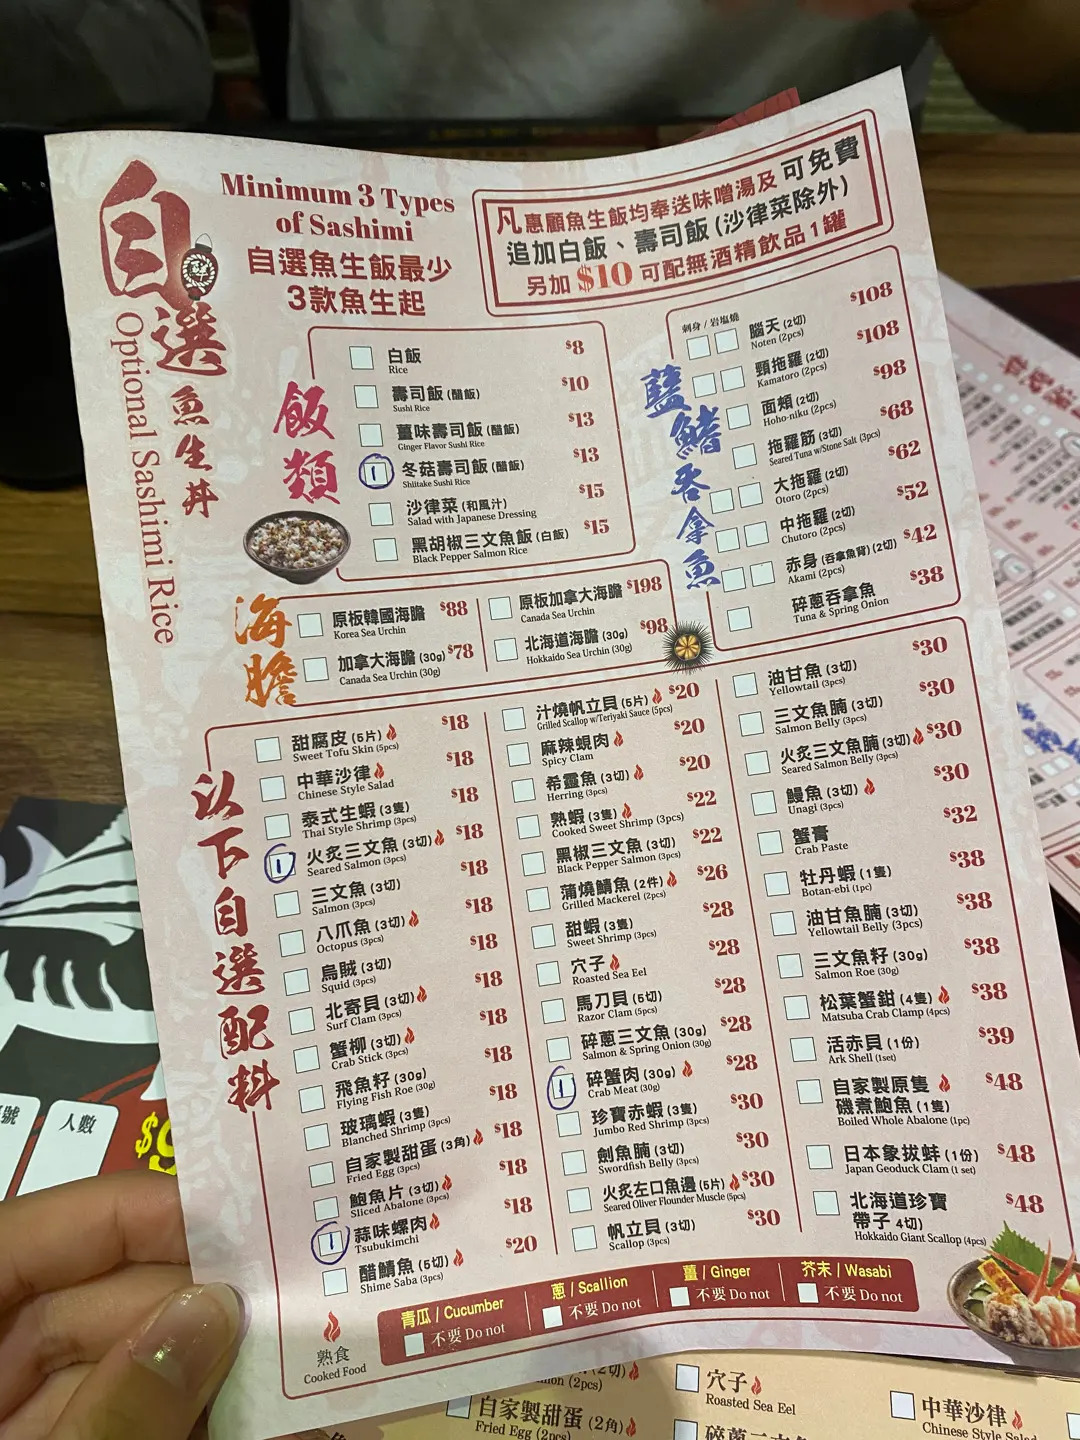 自選魚生丼
Optional Sashimi Rice
Minimum 3 Types
of Sashimi
自選魚生飯最少
3款魚生起
凡惠顧魚生飯均奉送味噌湯及可免費
追加白飯、壽司飯(沙律菜除外)
另加$10可配無酒精飲品1罐
飯類
白飯 $8
Rice
壽司飯(醋飯) $10
Sushi Rice
薑味壽司飯(醋飯) $13
Ginger Flavor Sushi Rice
1 冬菇壽司飯(醋飯) $13
Shiitake Sushi Rice
沙律菜(和風汁) $15
Salad with Japanese Dressing
黑胡椒三文魚飯(白飯) $15
Black Pepper Salmon Rice
藍鰭吞拿魚
刺身/岩塩燒
腦天(2切) $108
Noten (2pcs)
頸拖羅(2切) $108
Kamatoro (2pcs)
面頰(2切) $98
Hoho-niku (2pcs)
拖羅筋(3切) $68
Seared Tuna w/Stone Salt (3pcs)
大拖羅(2切) $62
Otoro (2pcs)
中拖羅(2切) $52
Chutoro (2pcs)
赤身(吞拿魚背)(2切) $42
Akami (2pcs)
碎蔥吞拿魚 $38
Tuna & Spring Onion
海膽
原板韓國海膽 $88
Korea Sea Urchin
加拿大海膽(30g) $78
Canada Sea Urchin (30g)
原板加拿大海膽 $198
Canada Sea Urchin
北海道海膽(30g) $98
Hokkaido Sea Urchin (30g)
以下自選配料
甜腐皮(5片) $18
Sweet Tofu Skin (5pcs)
中華沙律 $18
Chinese Style Salad
泰式生蝦(3隻) $18
Thai Style Shrimp (3pcs)
1 火炙三文魚(3切) $18
Seared Salmon (3pcs)
三文魚(3切) $18
Salmon (3pcs)
八爪魚(3切) $18
Octopus (3pcs)
烏賊(3切) $18
Squid (3pcs)
北寄貝(3切) $18
Surf Clam (3pcs)
蟹柳(3切) $18
Crab Stick (3pcs)
飛魚籽(30g) $18
Flying Fish Roe (30g)
玻璃蝦(3隻) $18
Blanched Shrimp (3pcs)
自家製甜蛋(3角) $18
Fried Egg (3pcs)
鮑魚片(3切) $18
Sliced Abalone (3pcs)
1 蒜味螺肉 $18
Tsubukimchi
醋鯖魚(5切) $20
Shime Saba (3pcs)
汁燒帆立貝(5片) $20
Grilled Scallop w/Teriyaki Sauce (5pcs)
麻辣蜆肉 $20
Spicy Clam
希靈魚(3切) $20
Herring (3pcs)
熟蝦(3隻) $22
Cooked Sweet Shrimp (3pcs)
黑椒三文魚(3切) $22
Black Pepper Salmon (3pcs)
蒲燒鯖魚(2件) $26
Grilled Mackerel (2pcs)
甜蝦(3隻) $28
Sweet Shrimp (3pcs)
穴子 $28
Roasted Sea Eel
馬刀貝(5切) $28
Razor Clam (5pcs)
碎蔥三文魚(30g) $28
Salmon & Spring Onion (30g)
1 碎蟹肉(30g) $28
Crab Meat (30g)
珍寶赤蝦(3隻) $30
Jumbo Red Shrimp (3pcs)
劍魚腩(3切) $30
Swordfish Belly (3pcs)
火炙左口魚邊(5片) $30
Seared Oliver Flounder Muscle (5pcs)
帆立貝(3切) $30
Scallop (3pcs)
油甘魚(3切) $30
Yellowtail (3pcs)
三文魚腩(3切) $30
Salmon Belly (3pcs)
火炙三文魚腩(3切) $30
Seared Salmon Belly (3pcs)
鰻魚(3切) $30
Unagi (3pcs)
蟹膏 $32
Crab Paste
牡丹蝦(1隻) $38
Botan-ebi (1pc)
油甘魚腩(3切) $38
Yellowtail Belly (3pcs)
三文魚籽(30g) $38
Salmon Roe (30g)
松葉蟹鉗(4隻) $38
Matsuba Crab Clamp (4pcs)
活赤貝(1份) $39
Ark Shell (1set)
自家製原隻 $48
磯煮鮑魚(1隻)
Boiled Whole Abalone (1pc)
日本象拔蚌(1份) $48
Japan Geoduck Clam (1 set)
北海道珍寶 $48
帶子 4切)
Hokkaido Giant Scallop (4pcs)
熟食
Cooked Food
青瓜/Cucumber
不要 Do not
蔥/Scallion
不要 Do not
薑/Ginger
不要 Do not
芥末/Wasabi
不要 Do not
號
人數
(2pcs)
自家製甜蛋(2角)
Fried Egg (2pcs)
穴子
Roasted Sea Eel
中華沙律
Chinese Style Salad